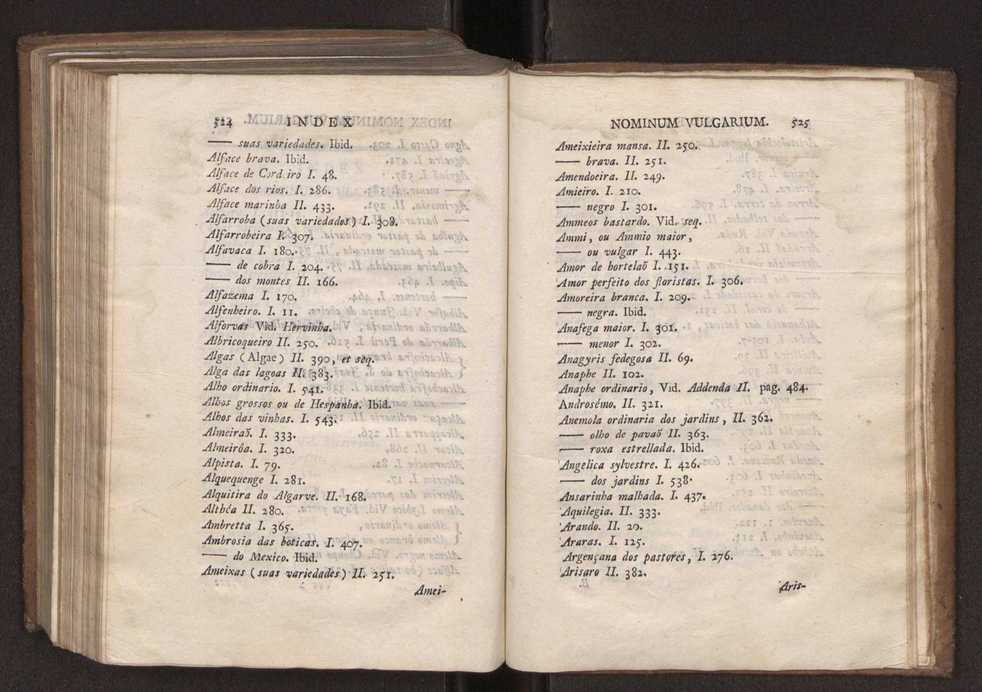 524 INDEX
—— suas variedades. Ibid.
Alface brava. Ibid.
Alface de Cordeiro I. 48.
Alface dos rios. I. 286.
Alface marinha II. 433.
Alfarroba (suas variedades) I. 308.
Alfarrobeira I. 307.
Alfavaca I. 180.
—— de cobra I. 204.
—— dos montes II. 166.
Alfazema I. 170.
Alfenheiro. I. 11.
Alforvas Vid. Hervinha.
Albricoqueiro II. 250.
Algas (Algae) II. 390, et seq.
Alga das lagoas II. 383.
Alho ordinario. I. 541.
Alhos grossos ou de Hespanha. Ibid.
Alhos das vinhas. I. 543.
Almeiraõ. I. 333.
Almeirôa. I. 320.
Alpista. I. 79.
Alquequenge I. 281.
Alquitira do Algarve. II. 168.
Althéa II. 280.
Ambretta I. 365.
Ambrosia das boticas. I. 407.
—— do Mexico. Ibid.
Ameixas (suas variedades) II. 251.
Amei-
NOMINUM VULGARIUM. 525
Ameixieira mansa. II. 250.
—— brava. II. 251.
Amendoeira. II. 249.
Amieiro. I. 210.
—— negro I. 301.
Ammeos bastardo. Vid. seq.
Ammi, ou Ammio maior,
—— ou vulgar I. 443.
Amor de hortelaõ I. 151.
Amor perfeito dos floristas. I. 306.
Amoreira branca. I. 209.
—— negra. Ibid.
Anafega maior. I. 301.
—— menor I. 302.
Anagyris fedegosa II. 69.
Anaphe II. 102.
Anaphe ordinario, Vid. Addenda II. pag. 484.
Androsémo. II. 321.
Anemola ordinaria dos jardins, II. 362.
—— olho de pavaõ II. 363.
—— roxa estrellada. Ibid.
Angelica sylvestre. I. 426.
—— dos jardins I. 538.
Ansarinha malhada. I. 437.
Aquilegia. II. 333.
Arando. II. 20.
Araras. I. 125.
Argençana dos pastores, I. 276.
Arisaro II. 382.
Aris-